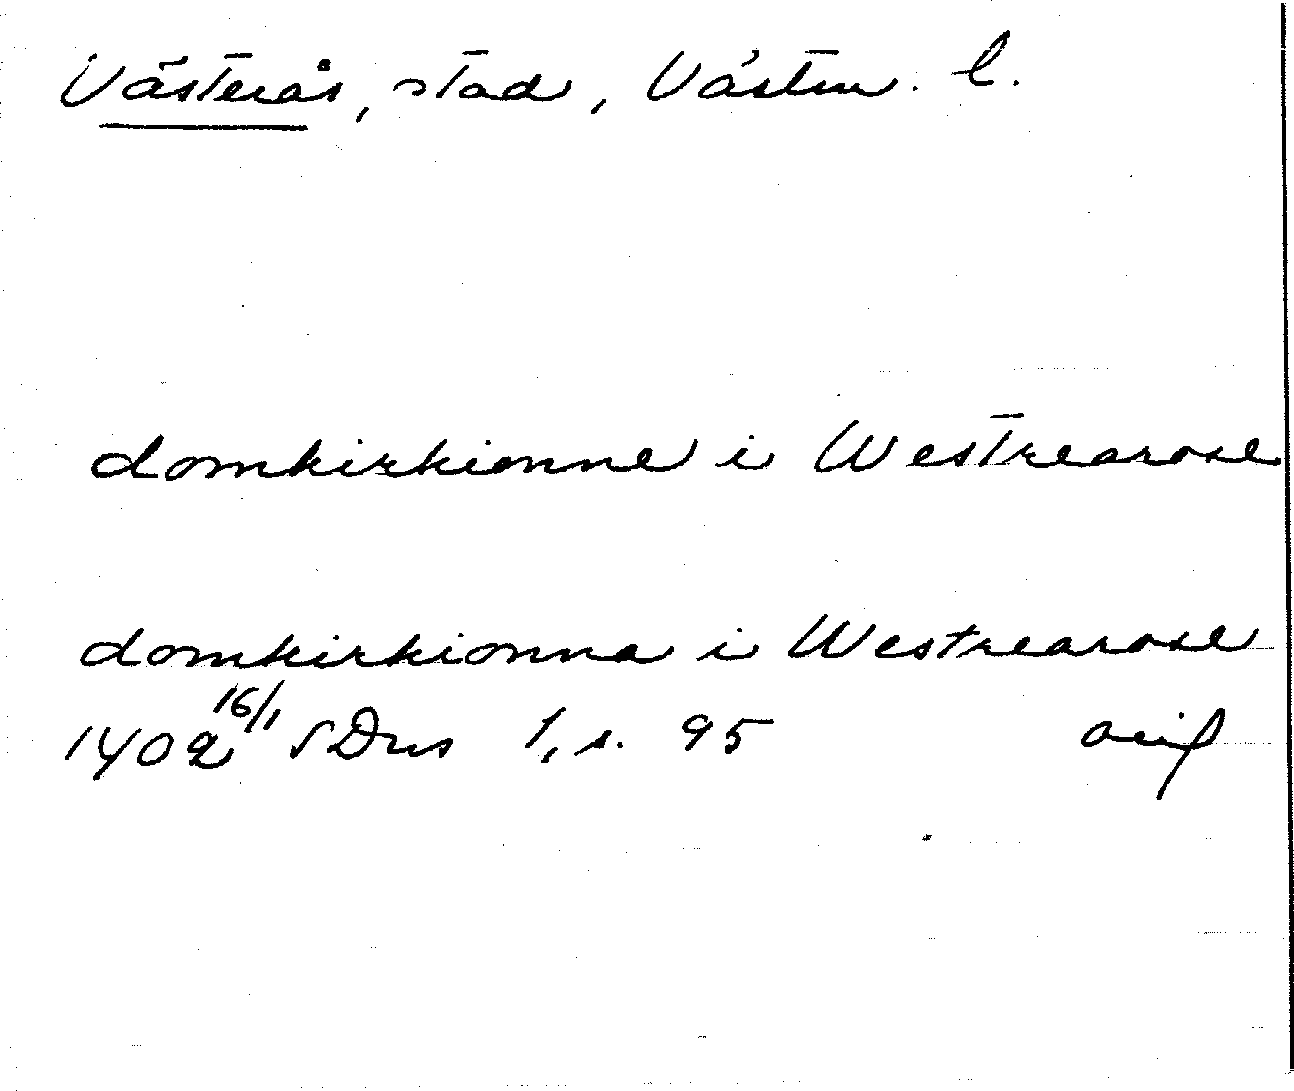 Västerås, stad, Västm. l.
domkirkionne i Westrearose
domkirkionna i Westrearose
1402 16/1 SDns 1, s. 95